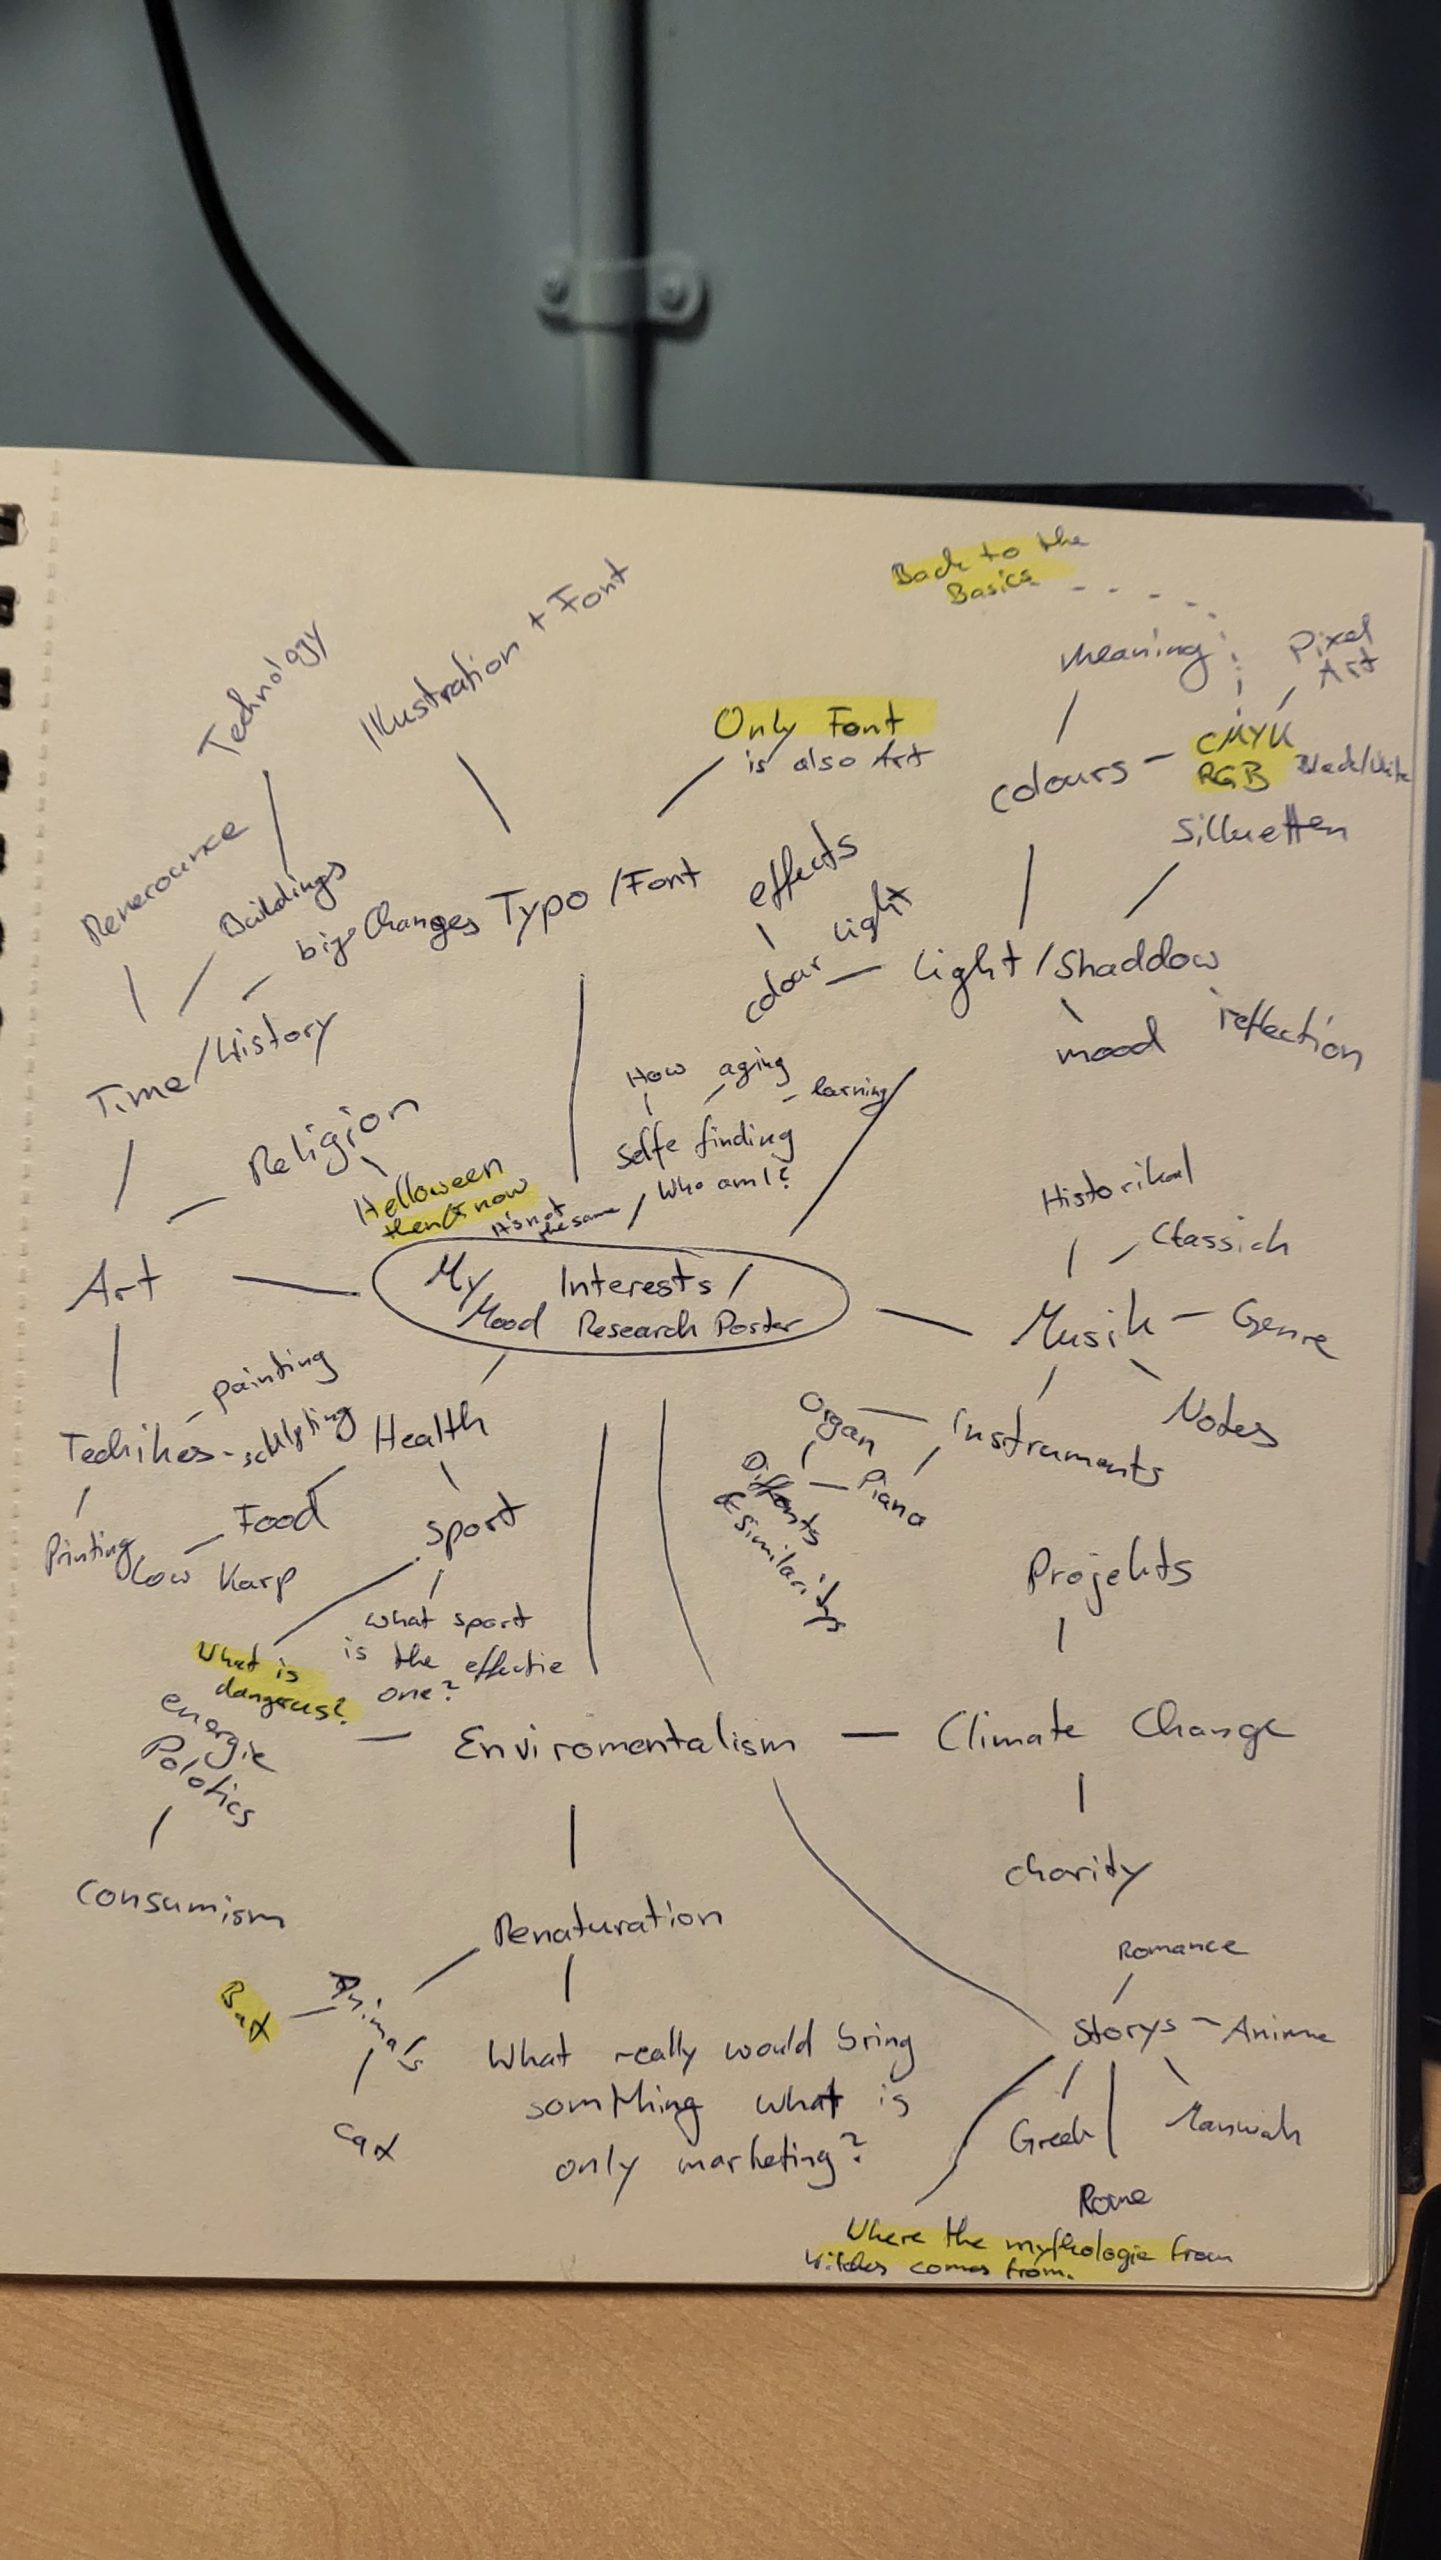 Back to the
Basics
Technology
Illustration + Font
meaning
Pixel
Art
Only Font
is also Art
CMYK
colours
RGB Black/White
Silluetten
Buildings
big Changes
Typo/Font
effects
colour light
Light/Shaddow
mood
reflection
Time/History
How aging
larning
Selfe finding
Who am I?
Religion
Helloween
then & now
It's not
the same
Historikal
Classich
Art
My Interests/
Mood Research Poster
Musik
Genre
Notes
painting
Techikes
sculpting
Health
Organ
Instruments
Piano
Differents
& Similaritys
Food
sport
Printing
Low Karp
Projekts
what sport
is the effectie
one?
What is
dangerus?
energie
Polotics
Enviromentalism
Climate Change
charity
Consumism
Renaturation
Romance
Bat
Animals
Storys
Anime
What really would bring
somthing what is
only marketing?
Cat
Greek
Manwah
Rome
Where the mythologie from
witches comes from.